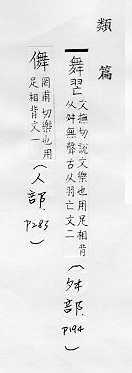 類篇
舞𦏶文撫切說文樂也用足相背
从舛無聲古从羽亡文二(舛部.P194)
儛罔甫切樂也用
足相背文一(人部.P283)